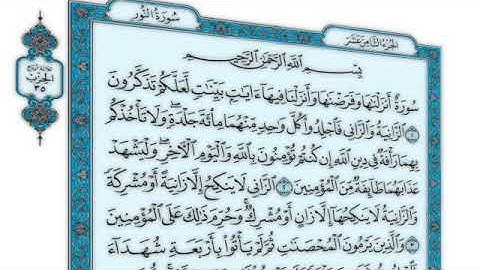 سُورَةُ النُّورِ
الجُزْءُ الثَّامِنَ عَشَرَ
الحِزْبُ
٣٥
بِسْمِ اللَّهِ الرَّحْمَٰنِ الرَّحِيمِ
سُورَةٌ أَنزَلْنَاهَا وَفَرَضْنَاهَا وَأَنزَلْنَا فِيهَا آيَاتٍ بَيِّنَاتٍ لَّعَلَّكُمْ تَذَكَّرُونَ
١ الزَّانِيَةُ وَالزَّانِي فَاجْلِدُوا كُلَّ وَاحِدٍ مِّنْهُمَا مِائَةَ جَلْدَةٍ وَلَا تَأْخُذْكُم
بِهِمَا رَأْفَةٌ فِي دِينِ اللَّهِ إِن كُنتُمْ تُؤْمِنُونَ بِاللَّهِ وَالْيَوْمِ الْآخِرِ وَلْيَشْهَدْ
عَذَابَهُمَا طَائِفَةٌ مِّنَ الْمُؤْمِنِينَ ٢ الزَّانِي لَا يَنكِحُ إِلَّا زَانِيَةً أَوْ مُشْرِكَةً
وَالزَّانِيَةُ لَا يَنكِحُهَا إِلَّا زَانٍ أَوْ مُشْرِكٌ وَحُرِّمَ ذَٰلِكَ عَلَى الْمُؤْمِنِينَ
٣ وَالَّذِينَ يَرْمُونَ الْمُحْصَنَاتِ ثُمَّ لَمْ يَأْتُوا بِأَرْبَعَةِ شُهَدَاءَ